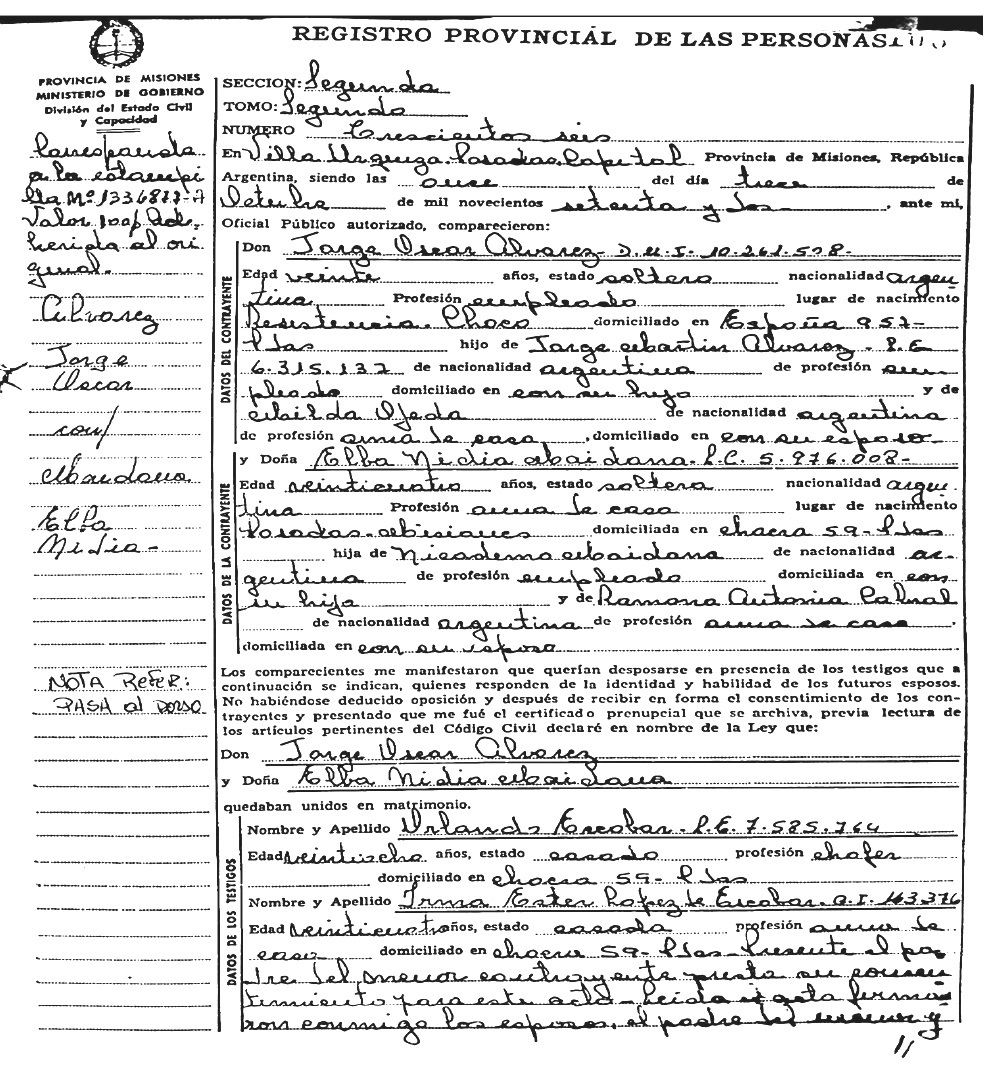 REGISTRO PROVINCIAL DE LAS PERSONAS
PROVINCIA DE MISIONES
MINISTERIO DE GOBIERNO
División del Estado Civil
y Capacidad
Corresponde
a la estampi
lla Nº 1336877-A
Valor 100p/ Ad
herida al ori
ginal.
Alvarez
Jorge
Oscar
con/
Maidana
Elba
Nidia-
NOTA Refer:
PASA al DORSO
SECCION: Segunda
TOMO: Segundo
NUMERO Trescientos seis
En Villa Urquiza. Posadas. Capital Provincia de Misiones, República
Argentina, siendo las once del día trece de
Octubre de mil novecientos setenta y dos , ante mi,
Oficial Público autorizado, comparecieron:
DATOS DEL CONTRAYENTE
Don Jorge Oscar Alvarez D.N.I. 10.261.578-
Edad veinte años, estado soltero nacionalidad argen
tina Profesión empleado lugar de nacimiento
Resistencia. Chaco domiciliado en España 957-
Pdas hijo de Jorge Martin Alvarez - L.E
6.315.137 de nacionalidad argentina de profesión em
pleado domiciliado en con su hijo y de
Matilda Ojeda de nacionalidad argentina
de profesión ama de casa , domiciliado en con su esposo-
DATOS DE LA CONTRAYENTE
y Doña Elba Nidia Maidana. L.C. 5.976.008-
Edad veinticuatro años, estado soltera nacionalidad argen
tina Profesión ama de casa lugar de nacimiento
Posadas. Misiones domiciliada en chacra 59- Pdas
hija de Nicademo Maidana de nacionalidad ar
gentina de profesión empleado domiciliada en con
su hija y de Ramona Antonia Cabral
de nacionalidad argentina de profesión ama de casa ,
domiciliada en con su esposo
Los comparecientes me manifestaron que querían desposarse en presencia de los testigos que a
continuación se indican, quienes responden de la identidad y habilidad de los futuros esposos.
No habiéndose deducido oposición y después de recibir en forma el consentimiento de los con-
trayentes y presentado que me fué el certificado prenupcial que se archiva, previa lectura de
los artículos pertinentes del Código Civil declaré en nombre de la Ley que:
Don Jorge Oscar Alvarez
y Doña Elba Nidia Maidana
quedaban unidos en matrimonio.
DATOS DE LOS TESTIGOS
Nombre y Apellido Orlando Escobar. L.E. 7.585.764
Edad veintiocho años, estado casado profesión chofer
domiciliado en chacra 59- Pdas
Nombre y Apellido Irma Ester Lopez de Escobar. C.I. 163.376
Edad veinticuatro años, estado casada profesión ama de
casa domiciliado en chacra 59- Pdas- Presente el pa
dre del menor contrayente presta su consen
timiento para este acto- Leida el acta firma
ron conmigo los esposos, el padre del menor y
//